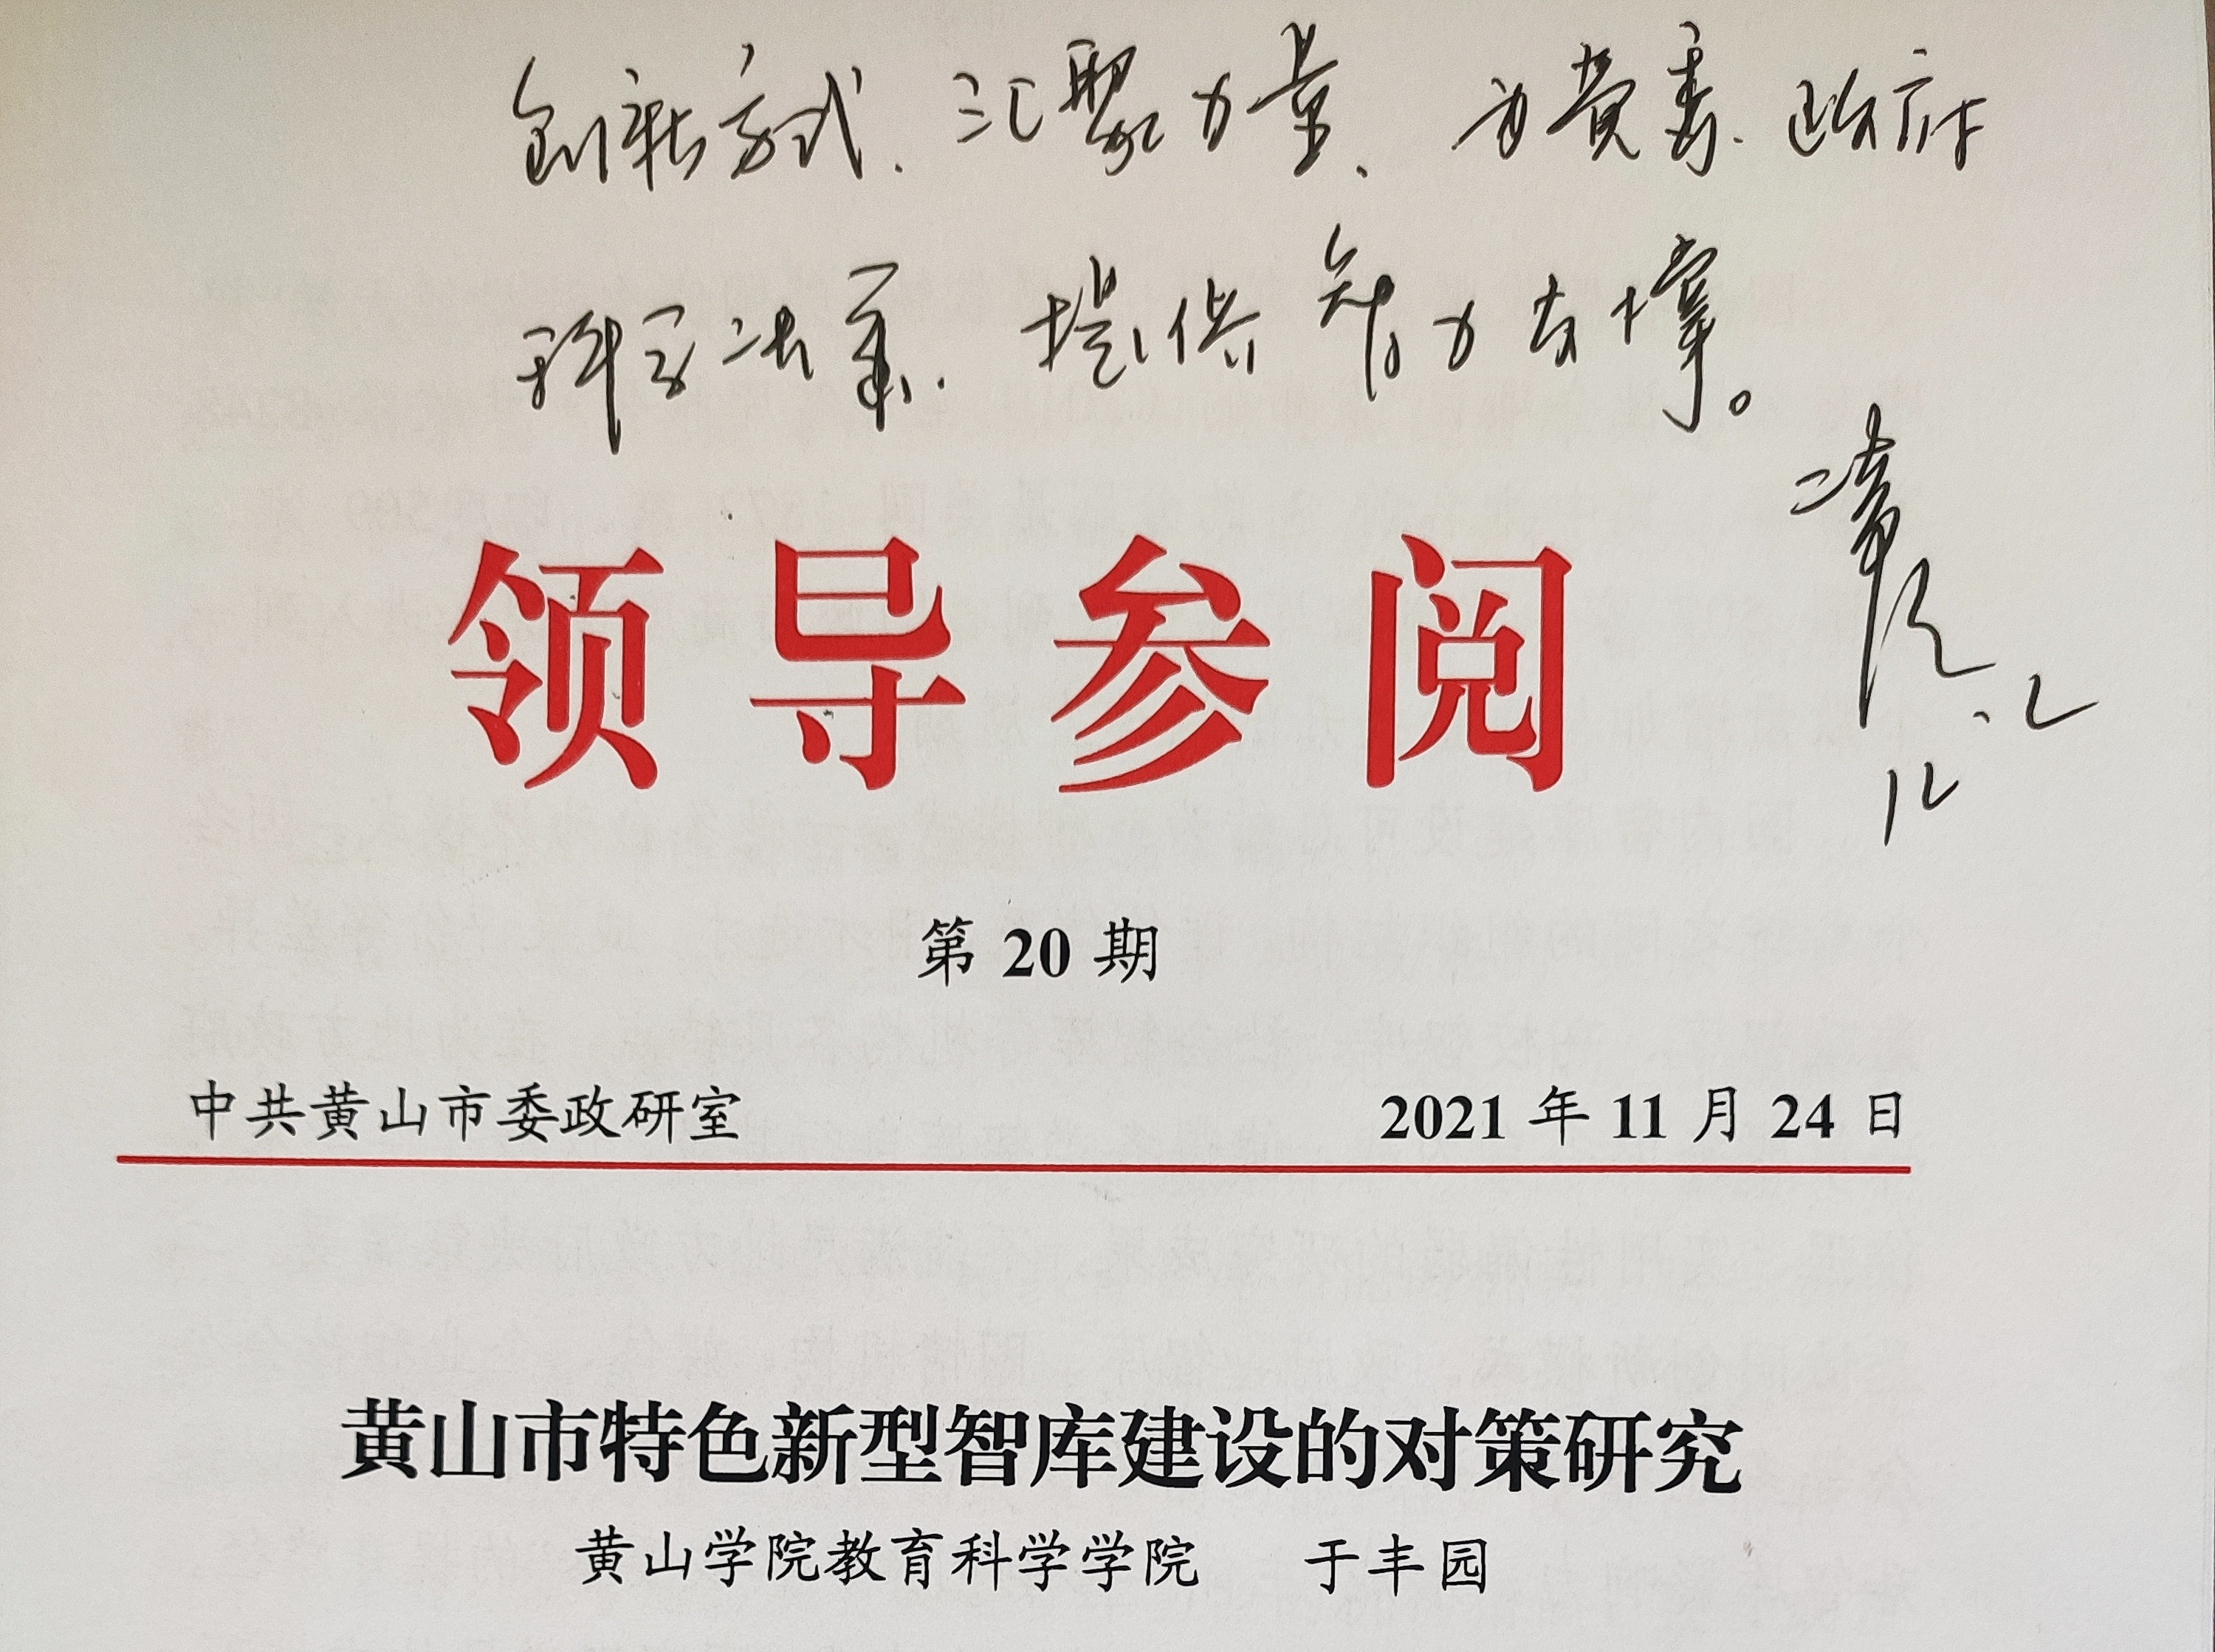 创新方式、汇聚力量、为党委、政府
科学决策、提供智力支撑。
领导参阅
第 20 期
中共黄山市委政研室 2021 年 11 月 24 日
黄山市特色新型智库建设的对策研究
黄山学院教育科学学院 于丰园